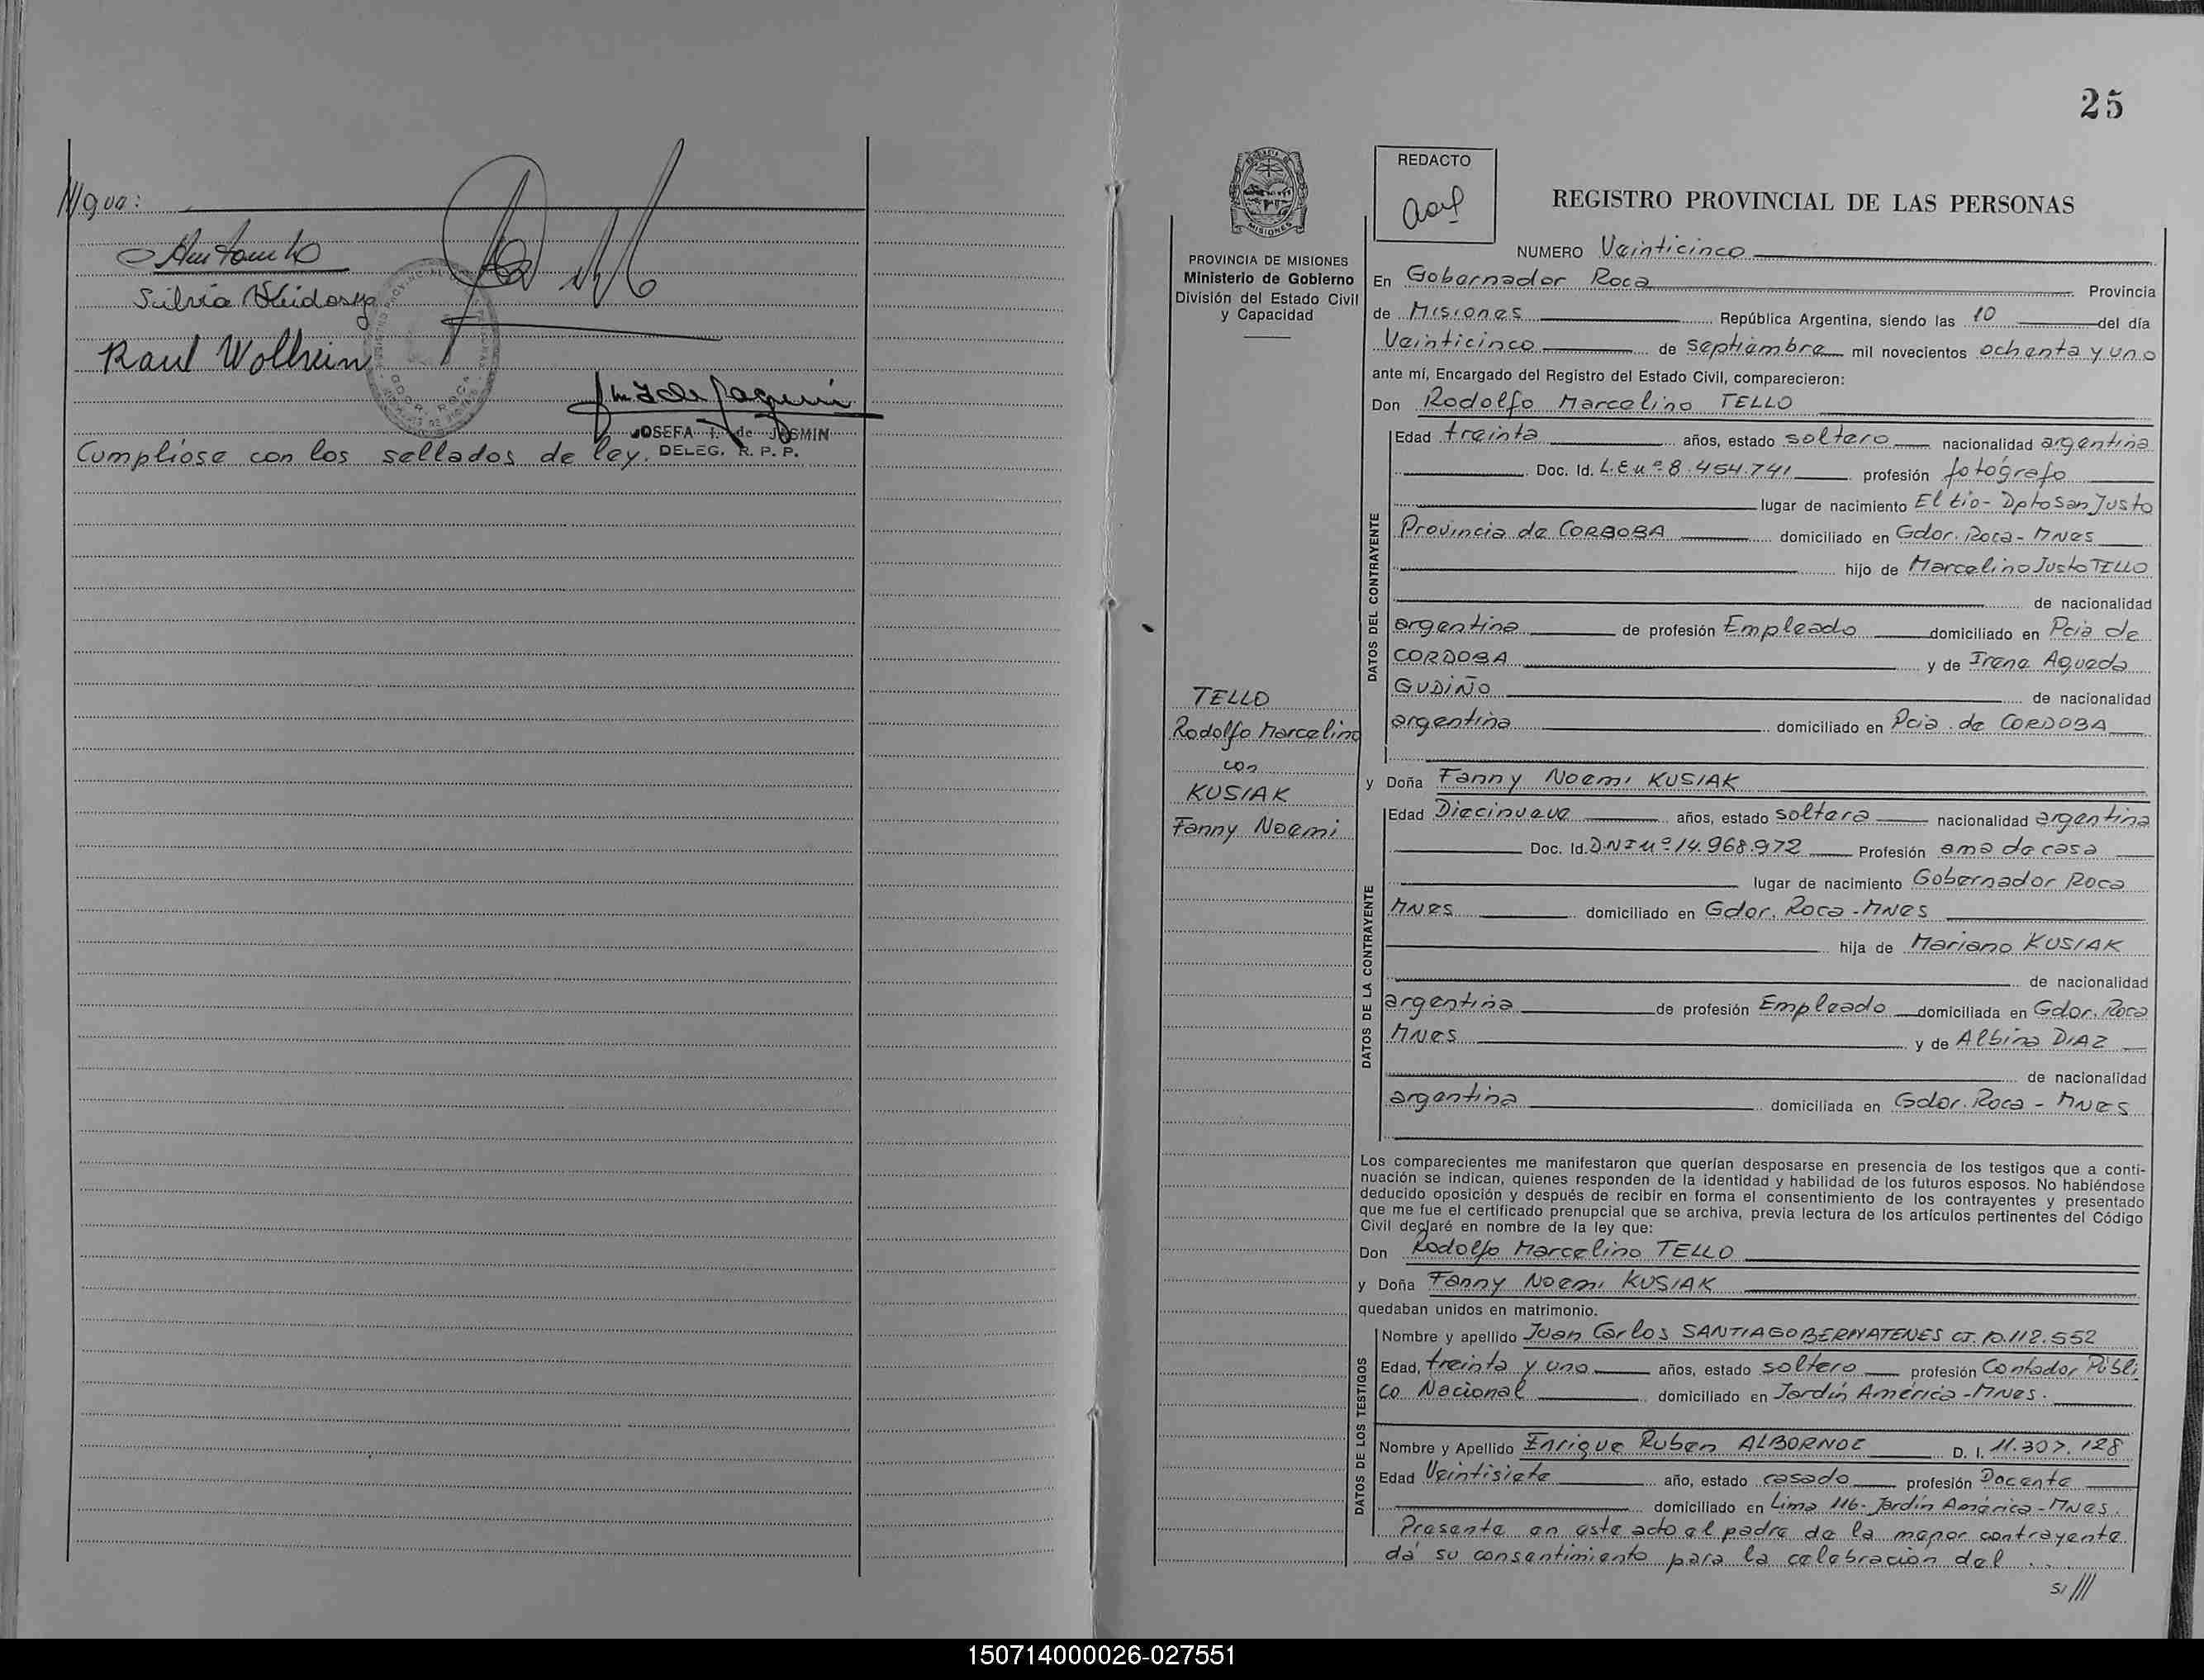 ///gua:
Silvia
Raul Wollrein
JOSEFA I. de JASMIN
DELEG. R. P. P.
Cumplióse con los sellados de ley.
25
REDACTO
REGISTRO PROVINCIAL DE LAS PERSONAS
PROVINCIA DE MISIONES
Ministerio de Gobierno
División del Estado Civil
y Capacidad
NUMERO Veinticinco
En Gobernador Roca Provincia
de Misiones República Argentina, siendo las 10 del día
Veinticinco de Septiembre mil novecientos ochenta y uno
ante mí, Encargado del Registro del Estado Civil, comparecieron:
Don Rodolfo Marcelino TELLO
DATOS DEL CONTRAYENTE
Edad treinta años, estado soltero nacionalidad argentina
Doc. Id. L.E nº 8.454.741 profesión fotógrafo
lugar de nacimiento El tio - Dpto San Justo
Provincia de CORDOBA domiciliado en Gdor. Roca - Mnes
hijo de Marcelino Justo TELLO
de nacionalidad
argentina de profesión Empleado domiciliado en Pcia de
CORDOBA y de Irene Agueda
GUDIÑO de nacionalidad
argentina domiciliado en Pcia. de CORDOBA
TELLO
Rodolfo Marcelino
con
KUSIAK
Fanny Noemi
y Doña Fanny Noemi KUSIAK
DATOS DE LA CONTRAYENTE
Edad Diecinueve años, estado soltera nacionalidad argentina
Doc. Id. DNI nº 14.968.972 Profesión ama de casa
lugar de nacimiento Gobernador Roca
Mnes domiciliado en Gdor. Roca - Mnes
hija de Mariano KUSIAK
de nacionalidad
argentina de profesión Empleado domiciliada en Gdor. Roca
Mnes y de Albina DIAZ
de nacionalidad
argentina domiciliada en Gdor. Roca - Mnes
Los comparecientes me manifestaron que querían desposarse en presencia de los testigos que a conti-
nuación se indican, quienes responden de la identidad y habilidad de los futuros esposos. No habiéndose
deducido oposición y después de recibir en forma el consentimiento de los contrayentes y presentado
que me fue el certificado prenupcial que se archiva, previa lectura de los artículos pertinentes del Código
Civil declaré en nombre de la ley que:
Don Rodolfo Marcelino TELLO
y Doña Fanny Noemi KUSIAK
quedaban unidos en matrimonio.
DATOS DE LOS TESTIGOS
Nombre y apellido Juan Carlos SANTIAGO CI. 10.112.552
Edad, treinta y uno años, estado soltero profesión Contador Públi
co Nacional domiciliado en Jardín América - Mnes.
Nombre y Apellido Enrique Ruben ALBORNOZ D. I. 11.307.128
Edad Veintisiete año, estado casado profesión Docente
domiciliado en Lima 116 - Jardín América - Mnes.
Presente en este acto el padre de la menor contrayente
dá su consentimiento para la celebración del
si///
150714000026-027551